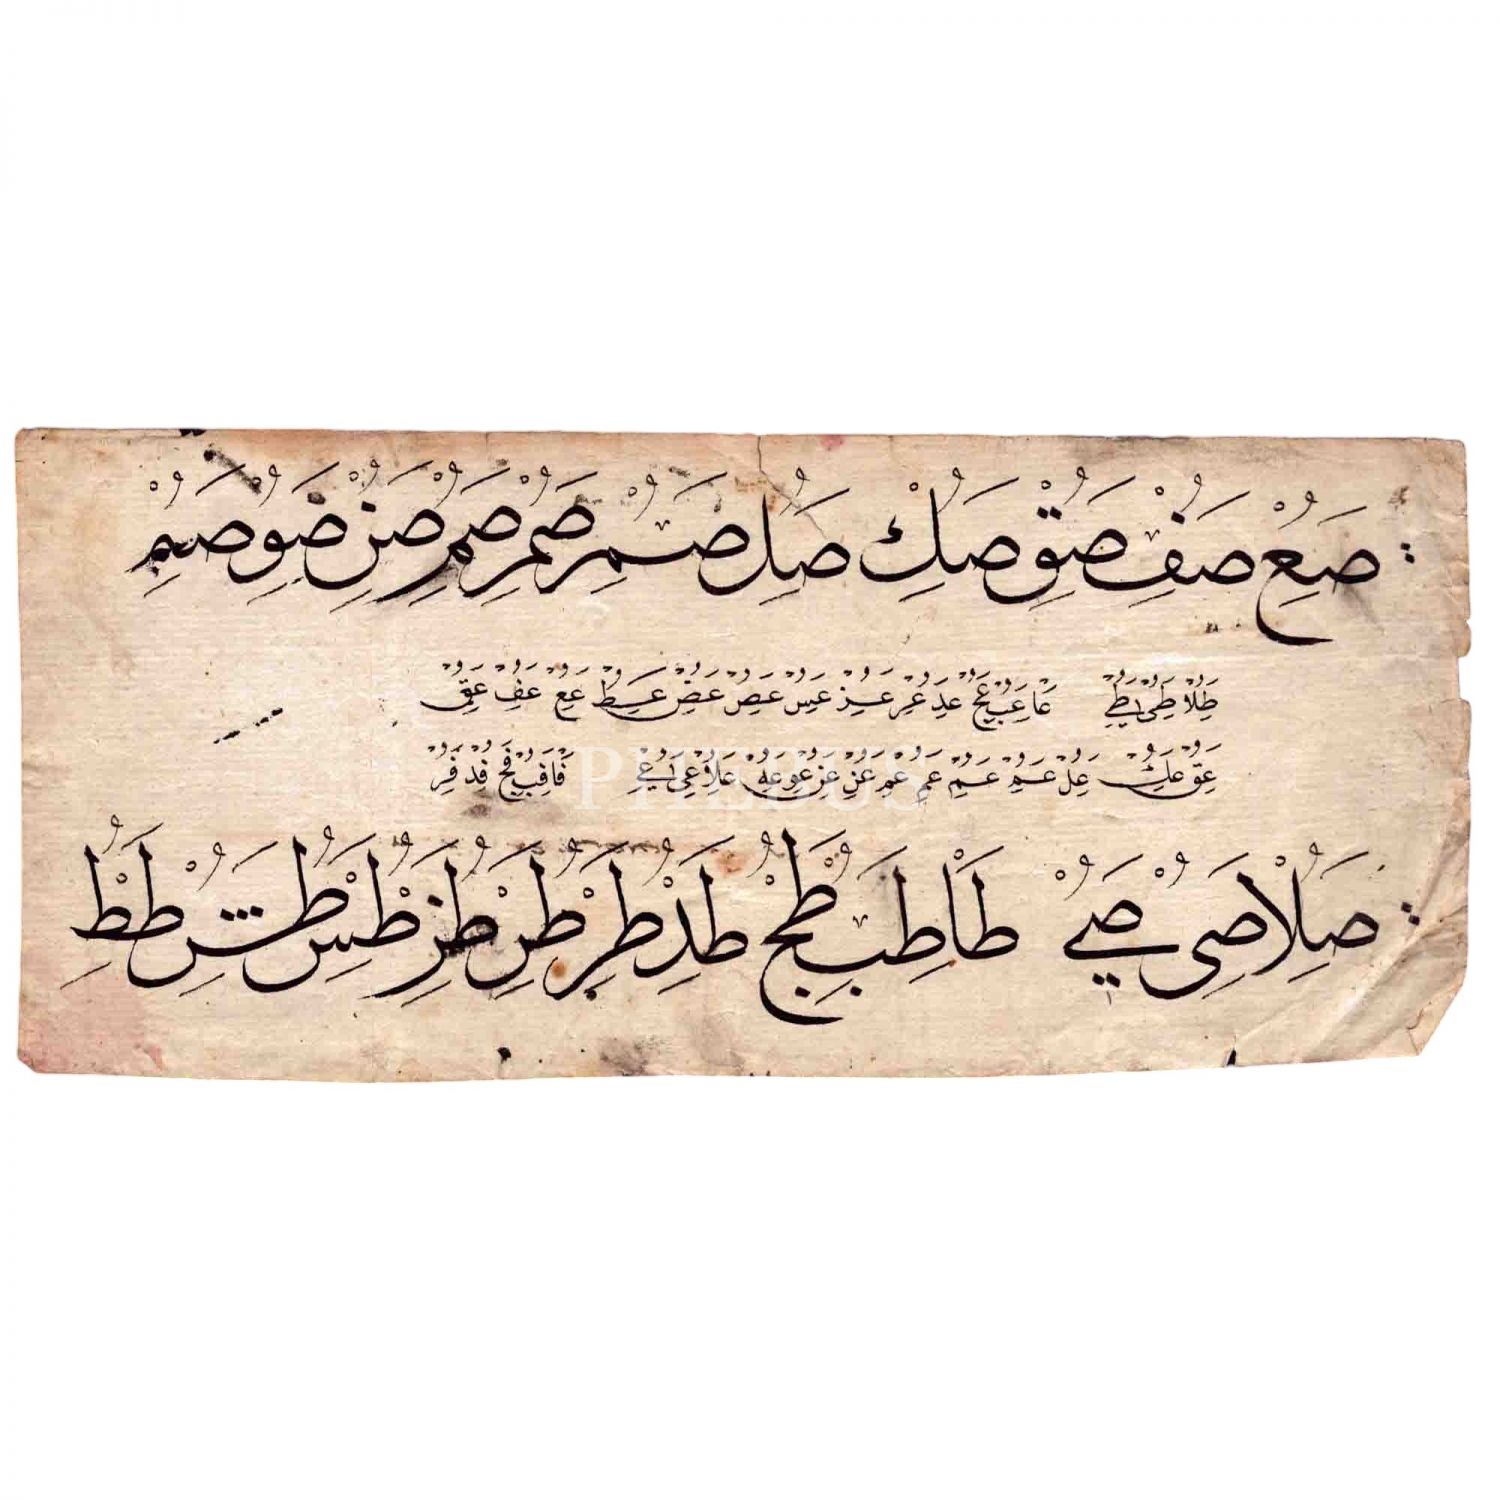 صع صف صق صك صل صم صم صم صن صو صم
طلا طى طے عا عب عج عد عر عز عس عص عض عط عع عف عق
عق عك عل عم عم عم عم عن عن عو عه علا عى عے فا فب فج فد فر
PHEBUS
صلا صى صے طا طب طج طد طر طر طز طس طش طط